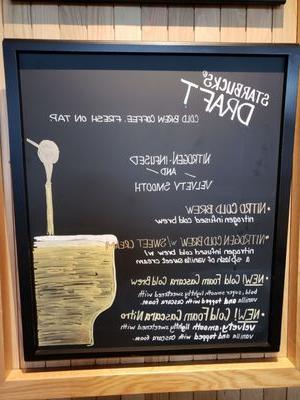 STARBUCKS®
DRAFT
COLD BREW COFFEE, FRESH ON TAP
NITROGEN-INFUSED
AND
VELVETY SMOOTH
• NITRO COLD BREW
nitrogen infused cold brew
• NITROGEN COLD BREW W/ SWEET CREAM
nitrogen infused cold brew w/
a splash of vanilla sweet cream
• NEW! Cold Foam Cascara Cold Brew
bold, super smooth lightly sweetened with
vanilla and topped with cascara foam
• NEW! Cold Foam Cascara Nitro
velvety smooth lightly sweetened with
vanilla and topped with cascara foam